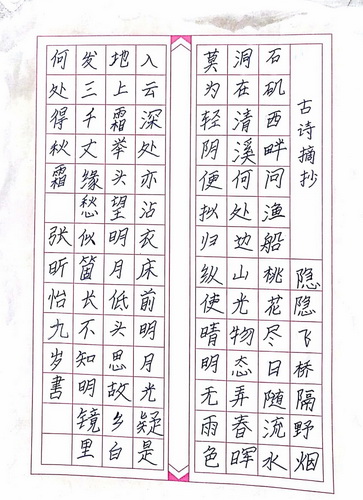 古诗摘抄
隐隐飞桥隔野烟
石矶西畔问渔船桃花尽日随流水
洞在清溪何处边山光物态弄春晖
莫为轻阴便拟归纵使晴明无雨色
入云深处亦沾衣床前明月光疑是
地上霜举头望明月低头思故乡白
发三千丈缘愁似箇长不知明镜里
何处得秋霜 张昕怡九岁書